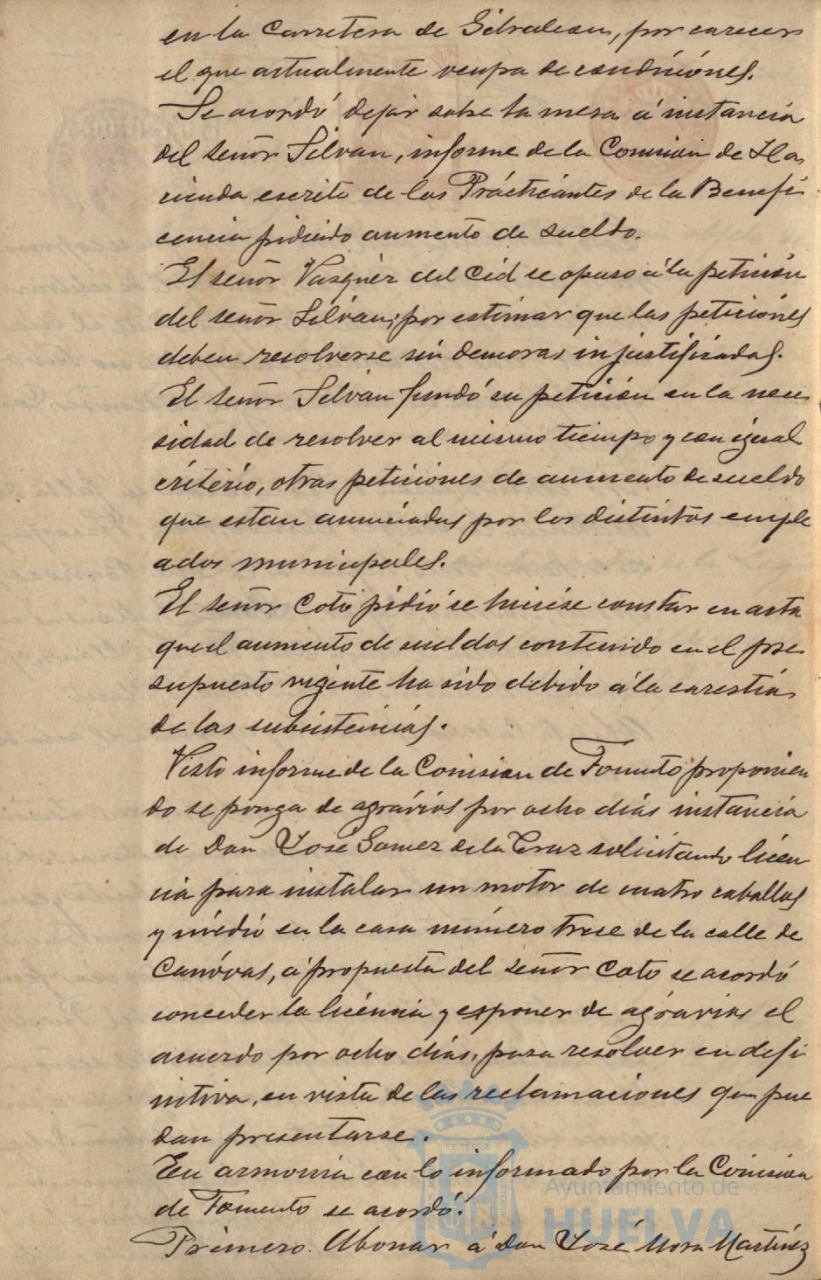 en la Carretera de Gibraleon, por carecer
el que actualmente ocupa de condiciónes.
Se acordó dejar sobre la mesa á instancia
del señor Silvan, informe de la Comision de Ha
cienda escrito de los Prácticantes de la Benefi
cencia pidiendo aumento de sueldo.
El señor Vazquez del Cid se opuso á la petición
del señor Silván, por estimar que las peticiónes
deben resolverse sin demoras injustificadas.
El señor Silván fundó su petición en la nece
sidad de resolver al mismo tiempo y con igual
critério, otras peticiones de aumento de sueldo
que estan anunciadas por los distintos emple
ados municipales.
El señor Coto pidió se hiciese constar en acta
que el aumento de sueldos contenido en el pre
supuesto vigente ha sido debido á la carestia
de las subsistencias.
Visto informe de la Comision de Fomento proponien
do se ponga de agrávios por ocho dias instancia
de Don José Gomez de la Cruz solicitando licen
cia para instalar un motor de cuatro caballos
y médio en la casa número trece de la calle de
Canóvas, á propuesta del señor Coto se acordó
conceder la licencia y esponer de agravios el
acuerdo por ocho dias, para resolver en defi
nitiva, en vista de las reclamaciones que pue
dan presentarse.
En armonia con lo informado por la Comision
de Fomento se acordó:
Primero. Abonar á Don José Mora Martinez
Ayuntamiento de
HUELVA